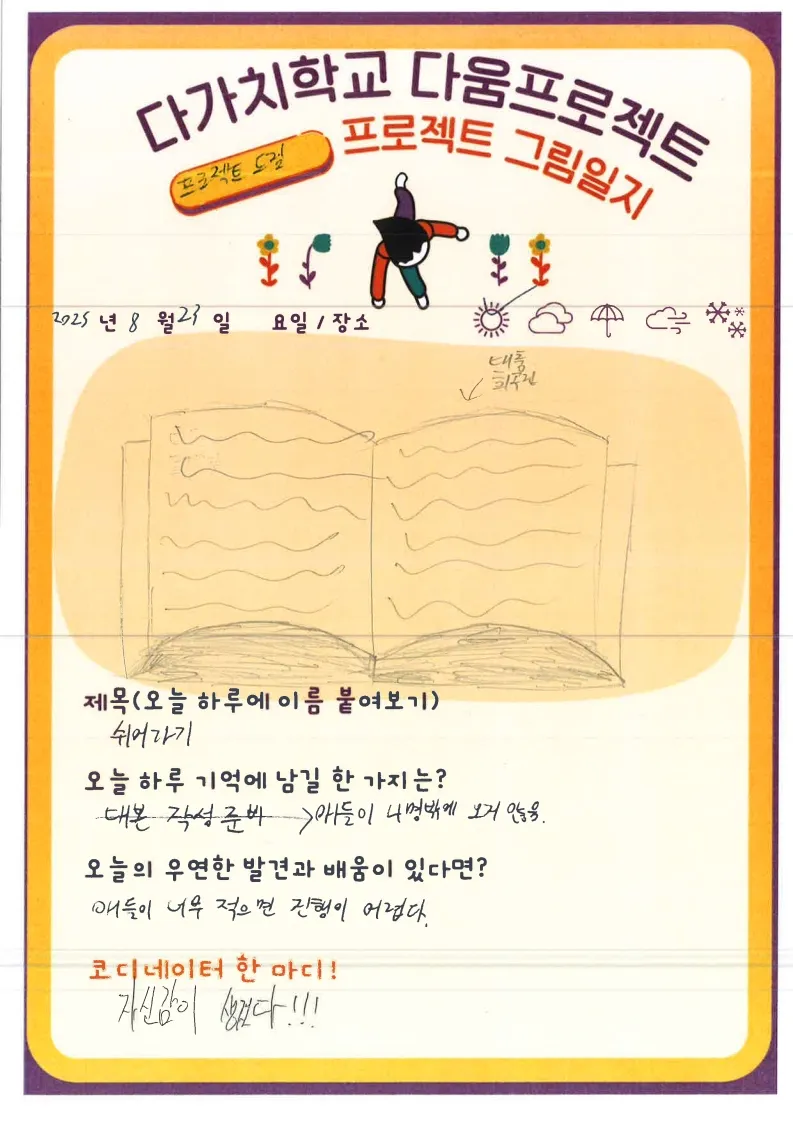 다가치학교 다움프로젝트
프로젝트 그림일지
프로젝트 드림
2025 년 8 월 23 일 요일 / 장소
제목(오늘 하루에 이름 붙여보기)
쉬어가기
오늘 하루 기억에 남길 한 가지는?
대본 작성 준비 > 애들이 4명밖에 오지 않음.
오늘의 우연한 발견과 배움이 있다면?
애들이 너무 적으면 진행이 어렵다.
코디네이터 한 마디!
자신감이 생겼다!!!